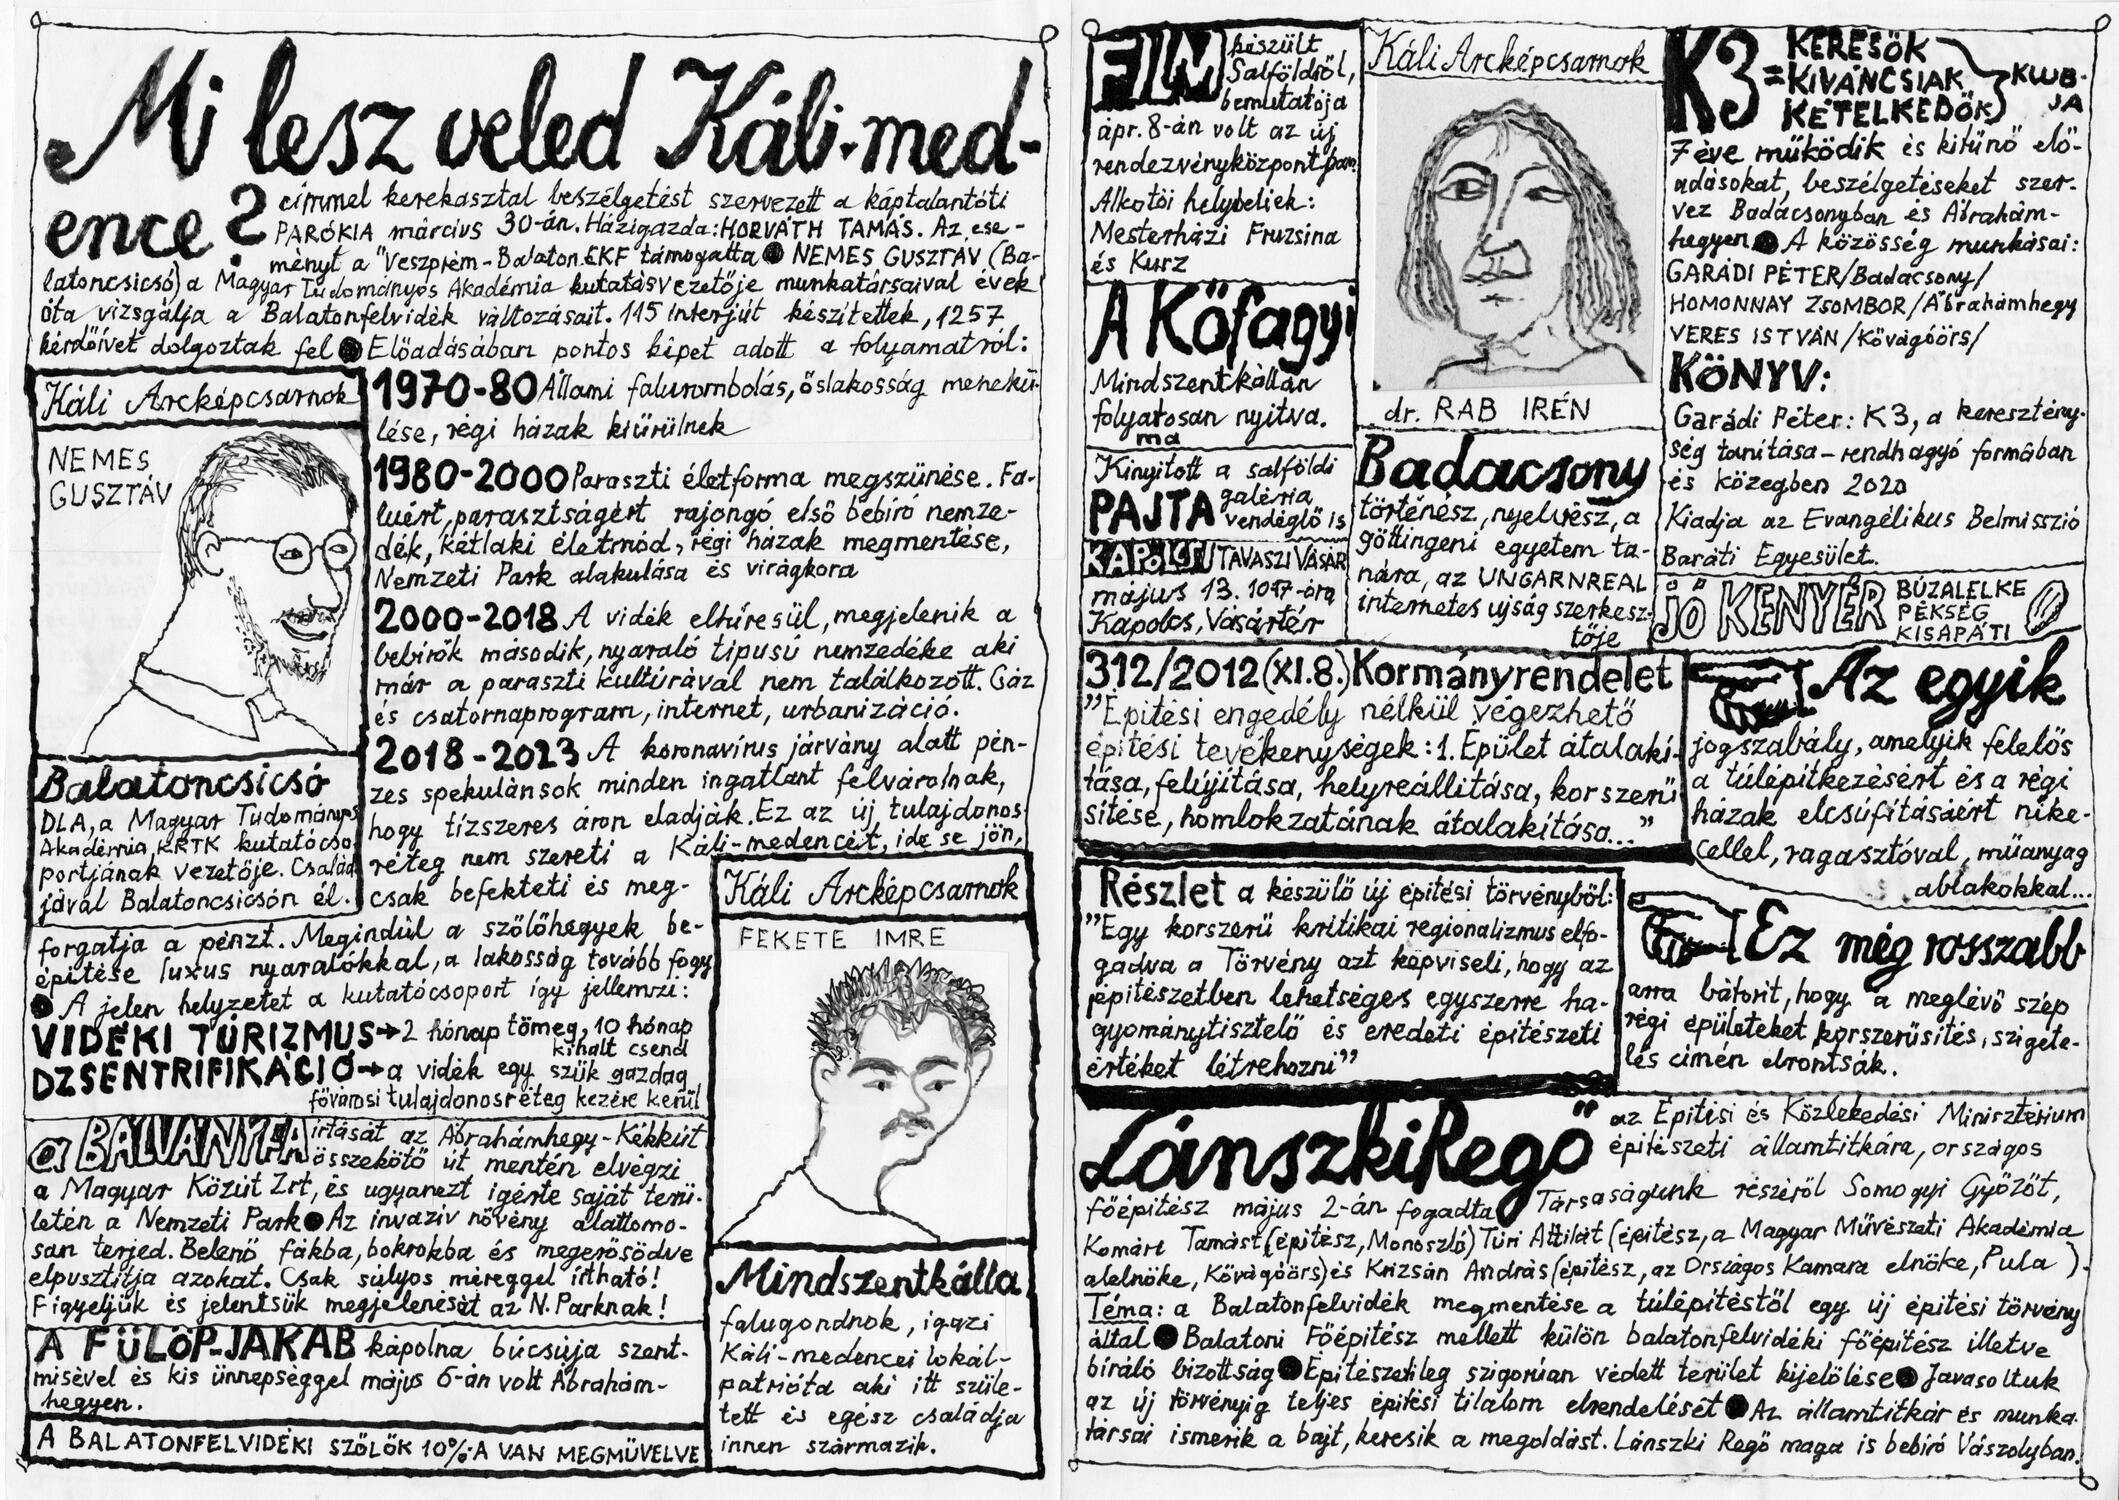 Mi lesz veled Káli-med-
ence?
címmel kerekasztal beszélgetést szervezett a káptalantóti
PARÓKIA március 30-án. Házigazda: HORVÁTH TAMÁS. Az ese-
ményt a "Veszprém-Balaton EKF támogatta ● NEMES GUSZTÁV (Ba-
latoncsicsó) a Magyar Tudományos Akadémia kutatásvezetője munkatársaival évek
óta vizsgálja a Balatonfelvidék változásait. 115 interjút készítettek, 1257
kérdőívet dolgoztak fel ● Előadásában pontos képet adott a folyamatról:
Káli Arcképcsarnok
NEMES
GUSZTÁV
Balatoncsicsó
DLA, a Magyar Tudományos
Akadémia KRTK kutatócso-
portjának vezetője. Család-
jával Balatoncsicsón él.
1970-80 Állami falurombolás, őslakosság menekü-
lése, régi házak kiürülnek
1980-2000 Paraszti életforma megszünése. Fa-
luért, parasztságért rajongó első bebíró nemze-
dék, kétlaki életmód, régi házak megmentése,
Nemzeti Park alakulása és virágkora
2000-2018 A vidék elhíresül, megjelenik a
bebírók második, nyaraló típusú nemzedéke aki
már a paraszti kultúrával nem találkozott. Gáz
és csatornaprogram, internet, urbanizáció.
2018-2023 A koronavírus járvány alatt pén-
zes spekulánsok minden ingatlant felvárolnak,
hogy tízszeres áron eladják. Ez az új tulajdonos-
réteg nem szereti a Káli-medencét, ide se jön,
csak befekteti és meg-
forgatja a pénzt. Megindúl a szőlőhegyek be-
építése luxus nyaralókkal, a lakosság tovább fogy
● A jelen helyzetet a kutatócsoport így jellemzi:
VIDÉKI TÚRIZMUS→2 hónap tömeg, 10 hónap
kihalt csend
DZSENTRIFIKÁCIÓ→a vidék egy szűk gazdag
fővárosi tulajdonosréteg kezére kerül
a BÁLVÁNYFA irtását az Ábrahámhegy-Kékkút
összekötő út mentén elvégzi
a Magyar Közút Zrt, és ugyanezt ígérte saját terü-
letén a Nemzeti Park ● Az invazív növény alattomo-
san terjed. Belenő fákba, bokrokba és megerősödve
elpusztítja azokat. Csak súlyos méreggel írtható!
Figyeljük és jelentsük megjelenését az N. Parknak!
A FÜLÖP-JAKAB kápolna búcsúja szent-
misével és kis ünnepséggel május 6-án volt Ábrahám-
hegyen.
A BALATONFELVIDÉKI SZŐLŐK 10%-A VAN MEGMŰVELVE
Káli Arcképcsarnok
FEKETE IMRE
Mindszentkálla
falugondnok, igazi
Káli-medencei lokál-
patrióta aki itt szüle-
tett és egész családja
innen származik.
FILM készült
Salföldről,
bemutatója
ápr. 8-án volt az új
rendezvényközpontban.
Alkotói helybeliek:
Mesterházi Fruzsina
és Kurz
A Kőfagyi
Mindszentkállán
folyatosan nyitva.
ma
Kinyitott a salföldi
PAJTA galéria
vendéglő is
KAPOLCSI TAVASZI VÁSÁR
május 13. 10-17-óra
Kapolcs, Vásártér
Káli Arcképcsarnok
dr. RAB IRÉN
Badacsony
történész, nyelvész, a
göttingeni egyetem ta-
nára, az UNGARNREAL
internetes ujság szerkesz-
tője
K3 = KERESŐK
KIVÁNCSIAK
KÉTELKEDŐK
KLUB-
JA
7 éve működik és kitűnő elő-
adásokat, beszélgetéseket szer-
vez Badacsonyban és Ábrahám-
hegyen ● A közösség munkásai:
GARÁDI PÉTER/Badacsony/
HOMONNAY ZSOMBOR/Ábrahámhegy
VERES ISTVÁN/Kővágóörs/
KÖNYV:
Garádi Péter: K3, a keresztény-
ség tanítása – rendhagyó formában
és közegben 2020
Kiadja az Evangélikus Belmisszió
Baráti Egyesület.
JÓ KENYÉR BÚZALELKE
PÉKSÉG
KISAPÁTI
312/2012 (XI.8.) Kormányrendelet
"Építési engedély nélkül végezhető
építési tevékenységek: 1. Épület átalakí-
tása, felújítása, helyreállitása, korszerű-
sítése, homlokzatának átalakítása..."
Az egyik
jogszabály, amelyik felelős
a túlépítkezésért és a régi
házak elcsúfításáért nike-
cellel, ragasztóval, műanyag
ablakokkal...
Részlet a készülő új építési törvényből:
"Egy korszerű kritikai regionalizmus elfo-
gadva a Törvény azt képviseli, hogy az
építészetben lehetséges egyszerre ha-
gyománytisztelő és eredeti építészeti
értéket létrehozni"
Ez még rosszabb
arra bátorít, hogy a meglévő szép
régi épületeket korszerűsítés, szigete-
lés címén elrontsák.
Lánszki Regő az Építési és Közlekedési Minisztérium
építészeti államtitkára, országos
főépítész május 2-án fogadta Társaságunk részéről Somogyi Győzőt,
Komári Tamást (építész, Monoszló) Túri Attilát (építész, a Magyar Művészeti Akadémia
alelnöke, Kővágóörs) és Krizsán András (építész, az Országos Kamara elnöke, Pula).
Téma: a Balatonfelvidék megmentése a túlépítéstől egy új építési törvény
által ● Balatoni Főépítész mellett külön balatonfelvidéki főépítész illetve
bíráló bizottság ● Építészetileg szigorúan védett terület kijelölése ● Javasoltuk
az új törvényig teljes építési tilalom elrendelését ● Az államtitkár és munka-
társai ismerik a bajt, keresik a megoldást. Lánszki Regő maga is bebíró Vászolyban.